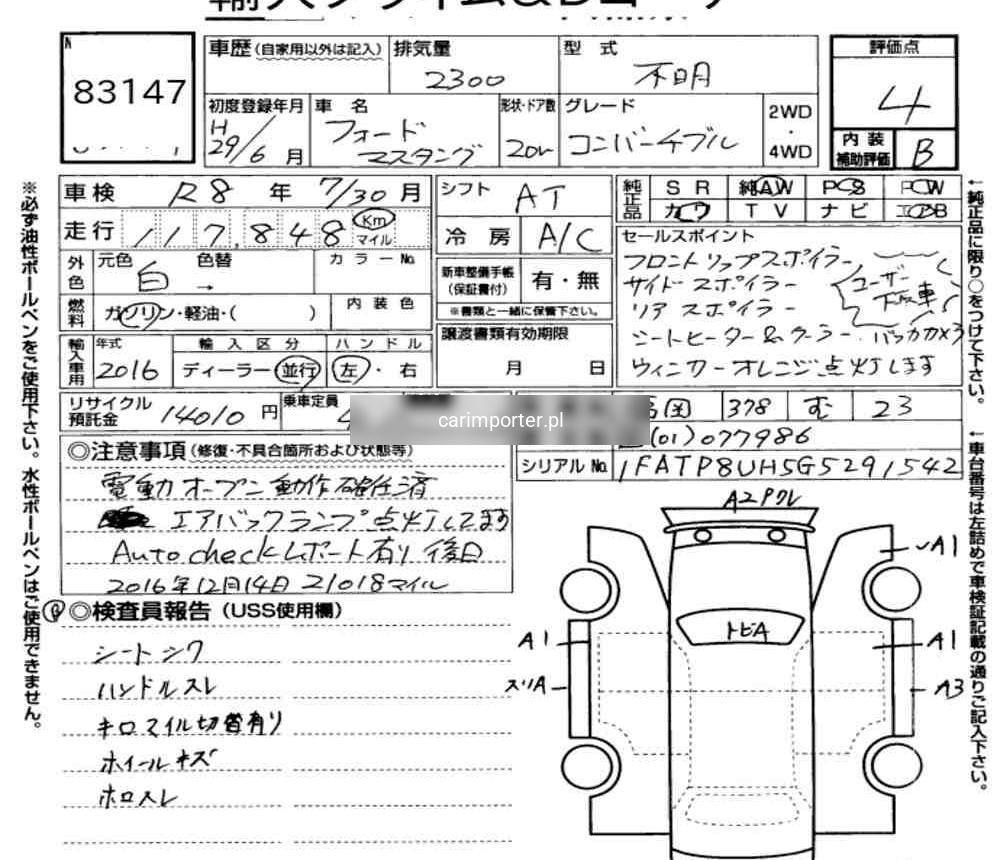 83147
車歴(自家用以外は記入)
排気量
2300
型 式
不明
評価点
4
初度登録年月
H
29/6 月
車 名
フォード
マスタング
形状・ドア数
2Dr
グレード
コンバーチブル
2WD
・
4WD
内 装
補助評価
B
車検 R8 年 7/30 月
走行 117,848 Km マイル
外色 元色 白 色替 → カラーNo
燃料 ガソリン・軽油・( ) 内装色
輸入車用 年式 2016 輸入区分 ディーラー・並行 ハンドル 左・右
リサイクル預託金 14010 円 乗車定員
シフト AT
冷 房 A/C
新車整備手帳
(保証書付)
有・無
※書類と一緒に保管下さい。
譲渡書類有効期限
月 日
純正品 SR 純AW PS PW
カワ TV ナビ エアB
セールスポイント
フロントリップスポイラー
サイドスポイラー
リアスポイラー
ユーザー
下取車
シートヒーター&クーラー・バックカメラ
ウィンカーオレンジ点灯します
378 む 23
(01)077986
シリアルNo. 1FATP8UH5G5291542
carimporter.pl
◎注意事項(修復・不具合箇所および状態等)
電動オープン動作確任済
エアバックランプ点灯してます
Autocheckレポート有り 後日
2016年12月14日 21018マイル
◎検査員報告(USS使用欄)
シートシワ
ハンドルスレ
キロマイル切替有り
ホイールキズ
ホロスレ
A2 Pクレ
A1
トビA
A1
A1
スリA
A3
※必ず油性ボールペンをご使用下さい。水性ボールペンはご使用できません。
←純正品に限り○をつけて下さい。
←車台番号は左詰めで車検証記載の通りご記入下さい。